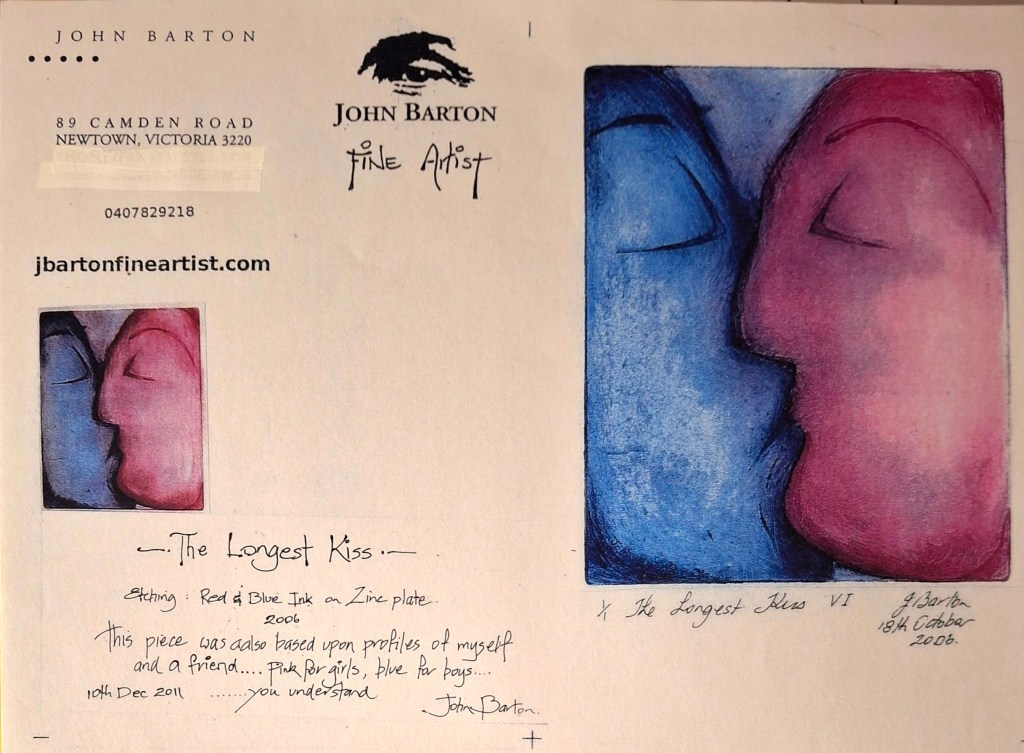 JOHN BARTON
89 CAMDEN ROAD
NEWTOWN, VICTORIA 3220
0407829218
jbartonfineartist.com
JOHN BARTON
FiNE Artist
The Longest Kiss
Etching: Red & Blue Ink on Zinc plate..
2006
This piece was aslso based upon profiles of myself
and a friend.... pink for girls, blue for boys....
10th Dec 2011 .......you understand
John Barton.
1/1 The Longest Kiss VI
J Barton
18th October
2006.